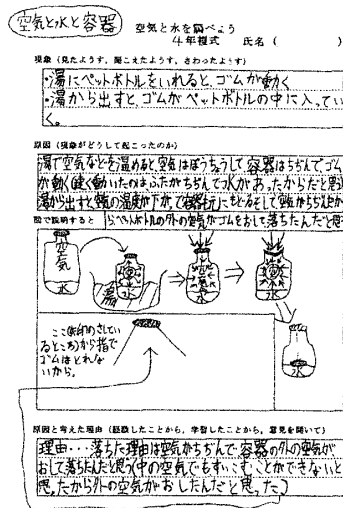 空気と水と容器
空気と水を調べよう
4年複式 氏名( )
現象(見たようす，聞こえたようす，さわったようす)
・湯にペットボトルをいれると、ゴムが動く
・湯から出すと、ゴムがペットボトルの中に入ってい
く。
原因(現象がどうして起こったのか)
湯で空気などを温めると空気はぼうちょうして容器はちぢんでゴム
が動く(速く動いたのはふたがちぢんで水があったからだと思
湯から出すと空気の温度が下がって容器も元にもどるそして空気がちぢむ
図で説明すると
らペットボトルの外の空気がゴムをおして落ちたんだと思
空気
水
湯
水
水
水
水
ここ(矢印のさしてい
るところ)から指で
ゴムはとれな
いから。
原因と考えた理由(経験したことから，学習したことから，意見を聞いて)
理由…落ちた理由は空気がちぢんで容器の外の空気が
おして落ちたんだと思う(中の空気でもすいこむことができないと
思ったから外の空気がおしたんだと思った)